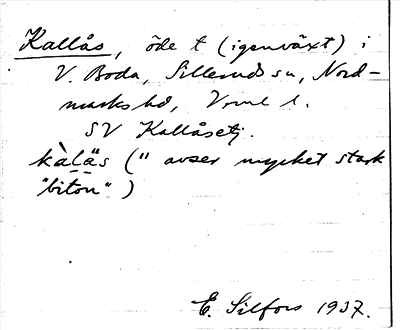 Kallås, öde t (igenväxt) i
V. Boda, Silleruds sn, Nord-
marks hd, Vrml l.
SV Kallåsetj.
kàläs (" avser mycket stark
"biton")
E. Silfors 1937.